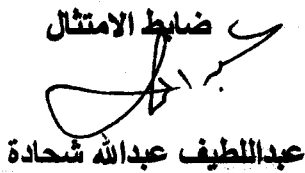 ضابط الامتثال
عبداللطيف عبدالله شحادة